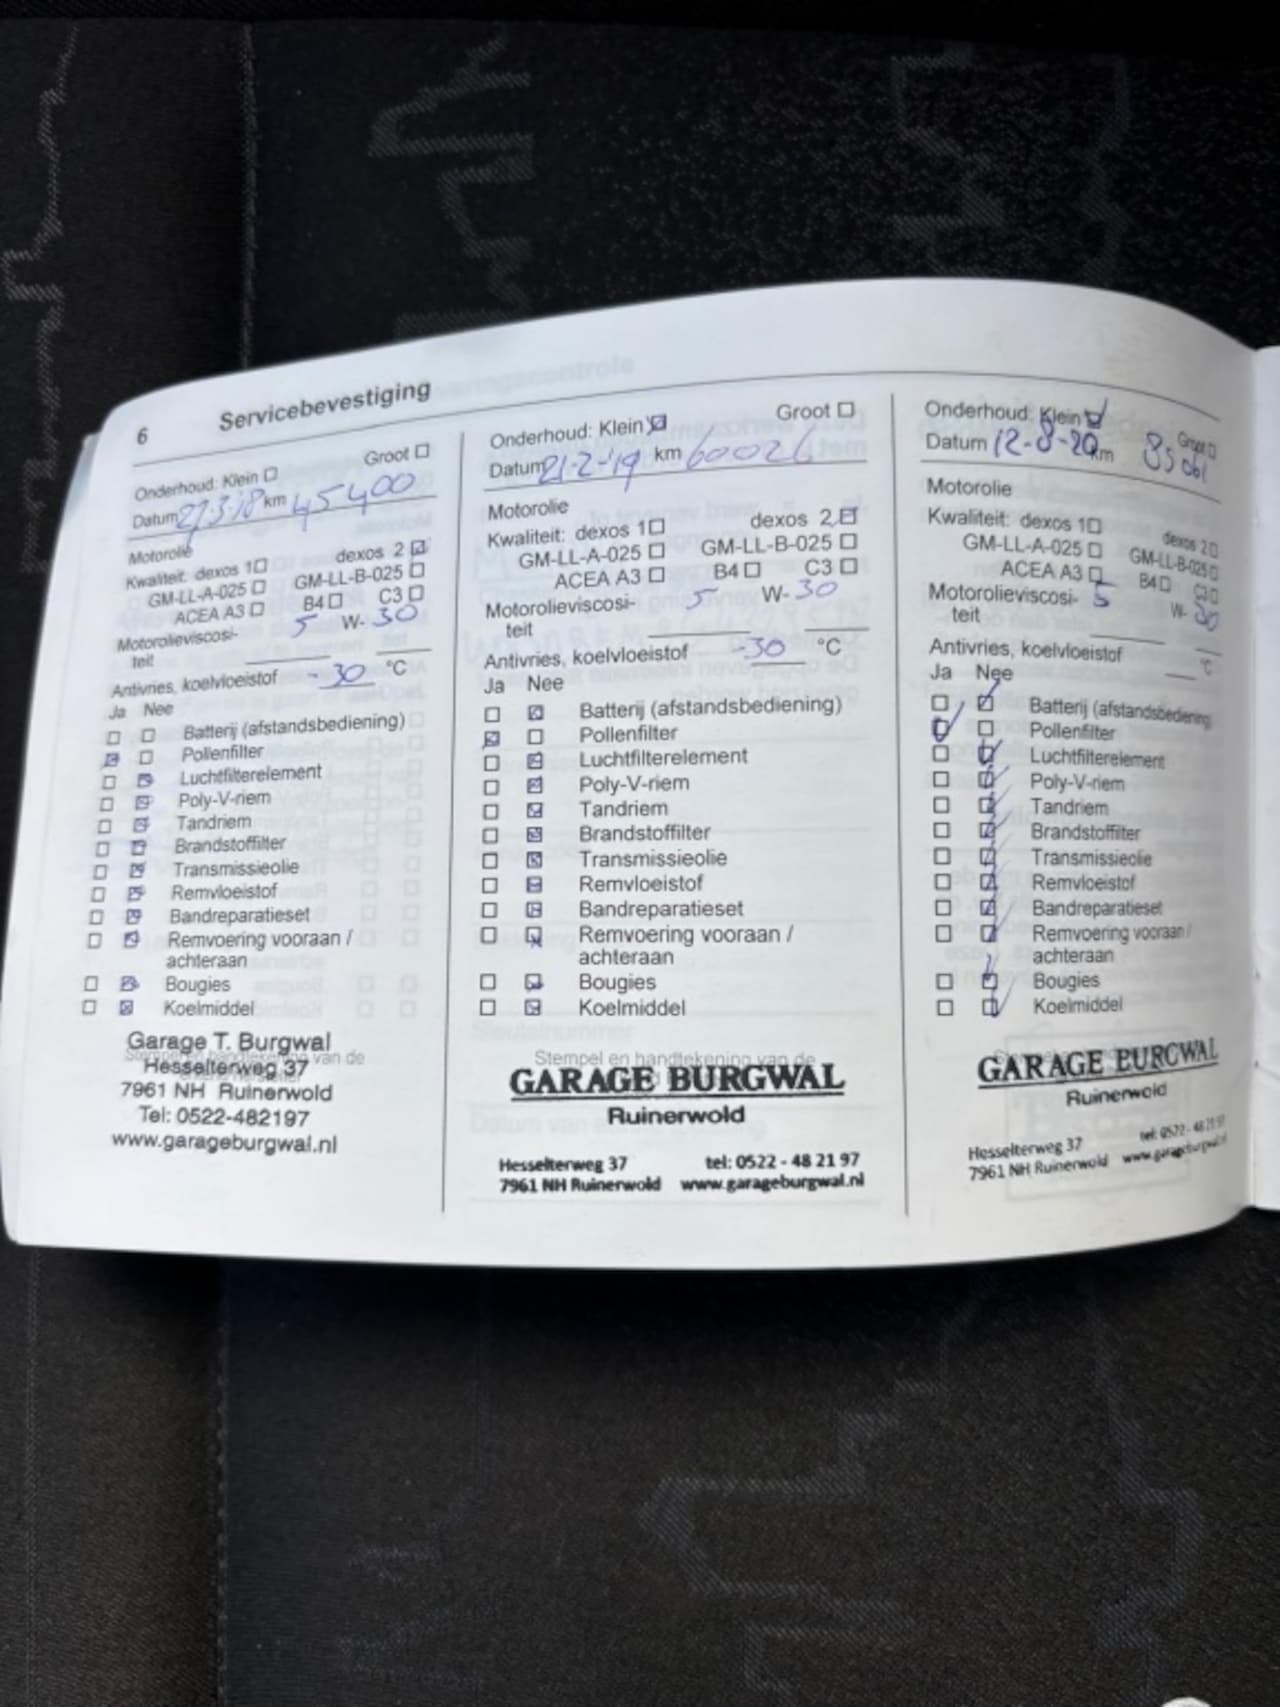 6 Servicebevestiging
Onderhoud: Klein ☐ Groot ☐
Datum 27-3-18 km 45400
Motorolie
Kwaliteit: dexos 1☐ dexos 2 ☑
GM-LL-A-025 ☐ GM-LL-B-025 ☐
ACEA A3 ☐ B4 ☐ C3 ☐
Motorolieviscosi- 5 W- 30
teit
Antivries, koelvloeistof -30 °C
Ja Nee
☐ ☐ Batterij (afstandsbediening)
☒ ☐ Pollenfilter
☐ ☒ Luchtfilterelement
☐ ☒ Poly-V-riem
☐ ☒ Tandriem
☐ ☒ Brandstoffilter
☐ ☒ Transmissieolie
☐ ☒ Remvloeistof
☐ ☒ Bandreparatieset
☐ ☒ Remvoering vooraan /
achteraan
☐ ☒ Bougies
☐ ☒ Koelmiddel
Garage T. Burgwal
Hesselterweg 37
7961 NH Ruinerwold
Tel: 0522-482197
www.garageburgwal.nl
Onderhoud: Klein ☒ Groot ☐
Datum 21-2-'19 km 60026
Motorolie
Kwaliteit: dexos 1☐ dexos 2 ☑
GM-LL-A-025 ☐ GM-LL-B-025 ☐
ACEA A3 ☐ B4 ☐ C3 ☐
Motorolieviscosi- 5 W- 30
teit
Antivries, koelvloeistof -30 °C
Ja Nee
☐ ☒ Batterij (afstandsbediening)
☒ ☐ Pollenfilter
☐ ☒ Luchtfilterelement
☐ ☒ Poly-V-riem
☐ ☒ Tandriem
☐ ☒ Brandstoffilter
☐ ☒ Transmissieolie
☐ ☒ Remvloeistof
☐ ☒ Bandreparatieset
☐ ☒ Remvoering vooraan /
achteraan
☐ ☒ Bougies
☐ ☒ Koelmiddel
Stempel en handtekening van de
GARAGE BURGWAL
Ruinerwold
Hesselterweg 37 tel: 0522 - 48 21 97
7961 NH Ruinerwold www.garageburgwal.nl
Onderhoud: Klein ☑ Groot ☐
Datum 12-8-20 km 85061
Motorolie
Kwaliteit: dexos 1☐ dexos 2☐
GM-LL-A-025 ☐ GM-LL-B-025☐
ACEA A3 ☐ B4☐ C3☐
Motorolieviscosi- 5 W- 30
teit
Antivries, koelvloeistof °C
Ja Nee
☐ ☑ Batterij (afstandsbediening
☑ ☐ Pollenfilter
☐ ☑ Luchtfilterelement
☐ ☑ Poly-V-riem
☐ ☑ Tandriem
☐ ☑ Brandstoffilter
☐ ☑ Transmissieolie
☐ ☑ Remvloeistof
☐ ☑ Bandreparatieset
☐ ☑ Remvoering vooraan /
achteraan
☐ ☑ Bougies
☐ ☑ Koelmiddel
GARAGE BURGWAL
Ruinerwold
Hesselterweg 37 tel: 0522 - 48 21 97
7961 NH Ruinerwold www.garageburgwal.nl